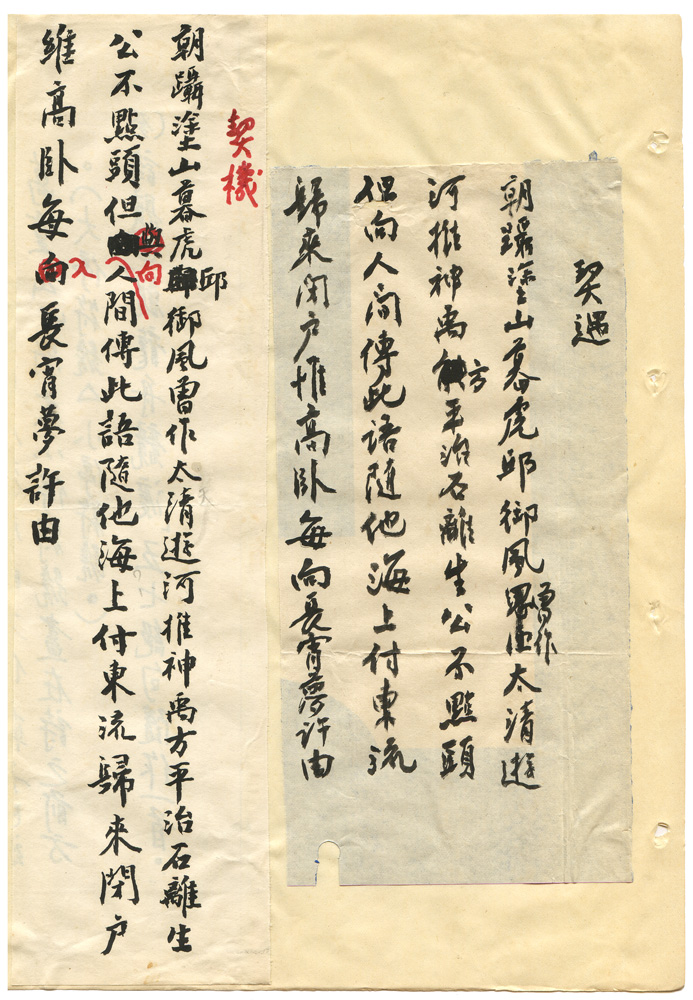 契遇
朝躡塗山暮虎邱御風曾作太清遊
河推神禹方平治石離生公不點頭
但向人間傳此語隨他海上付東流
歸來閉户惟高卧每向長宵夢許由
契機
朝躡塗山暮虎邱御風曾作太清遊河推神禹方平治石離生
公不點頭但與向人間傳此語隨他海上付東流歸來閉户
維高卧每向入長宵夢許由